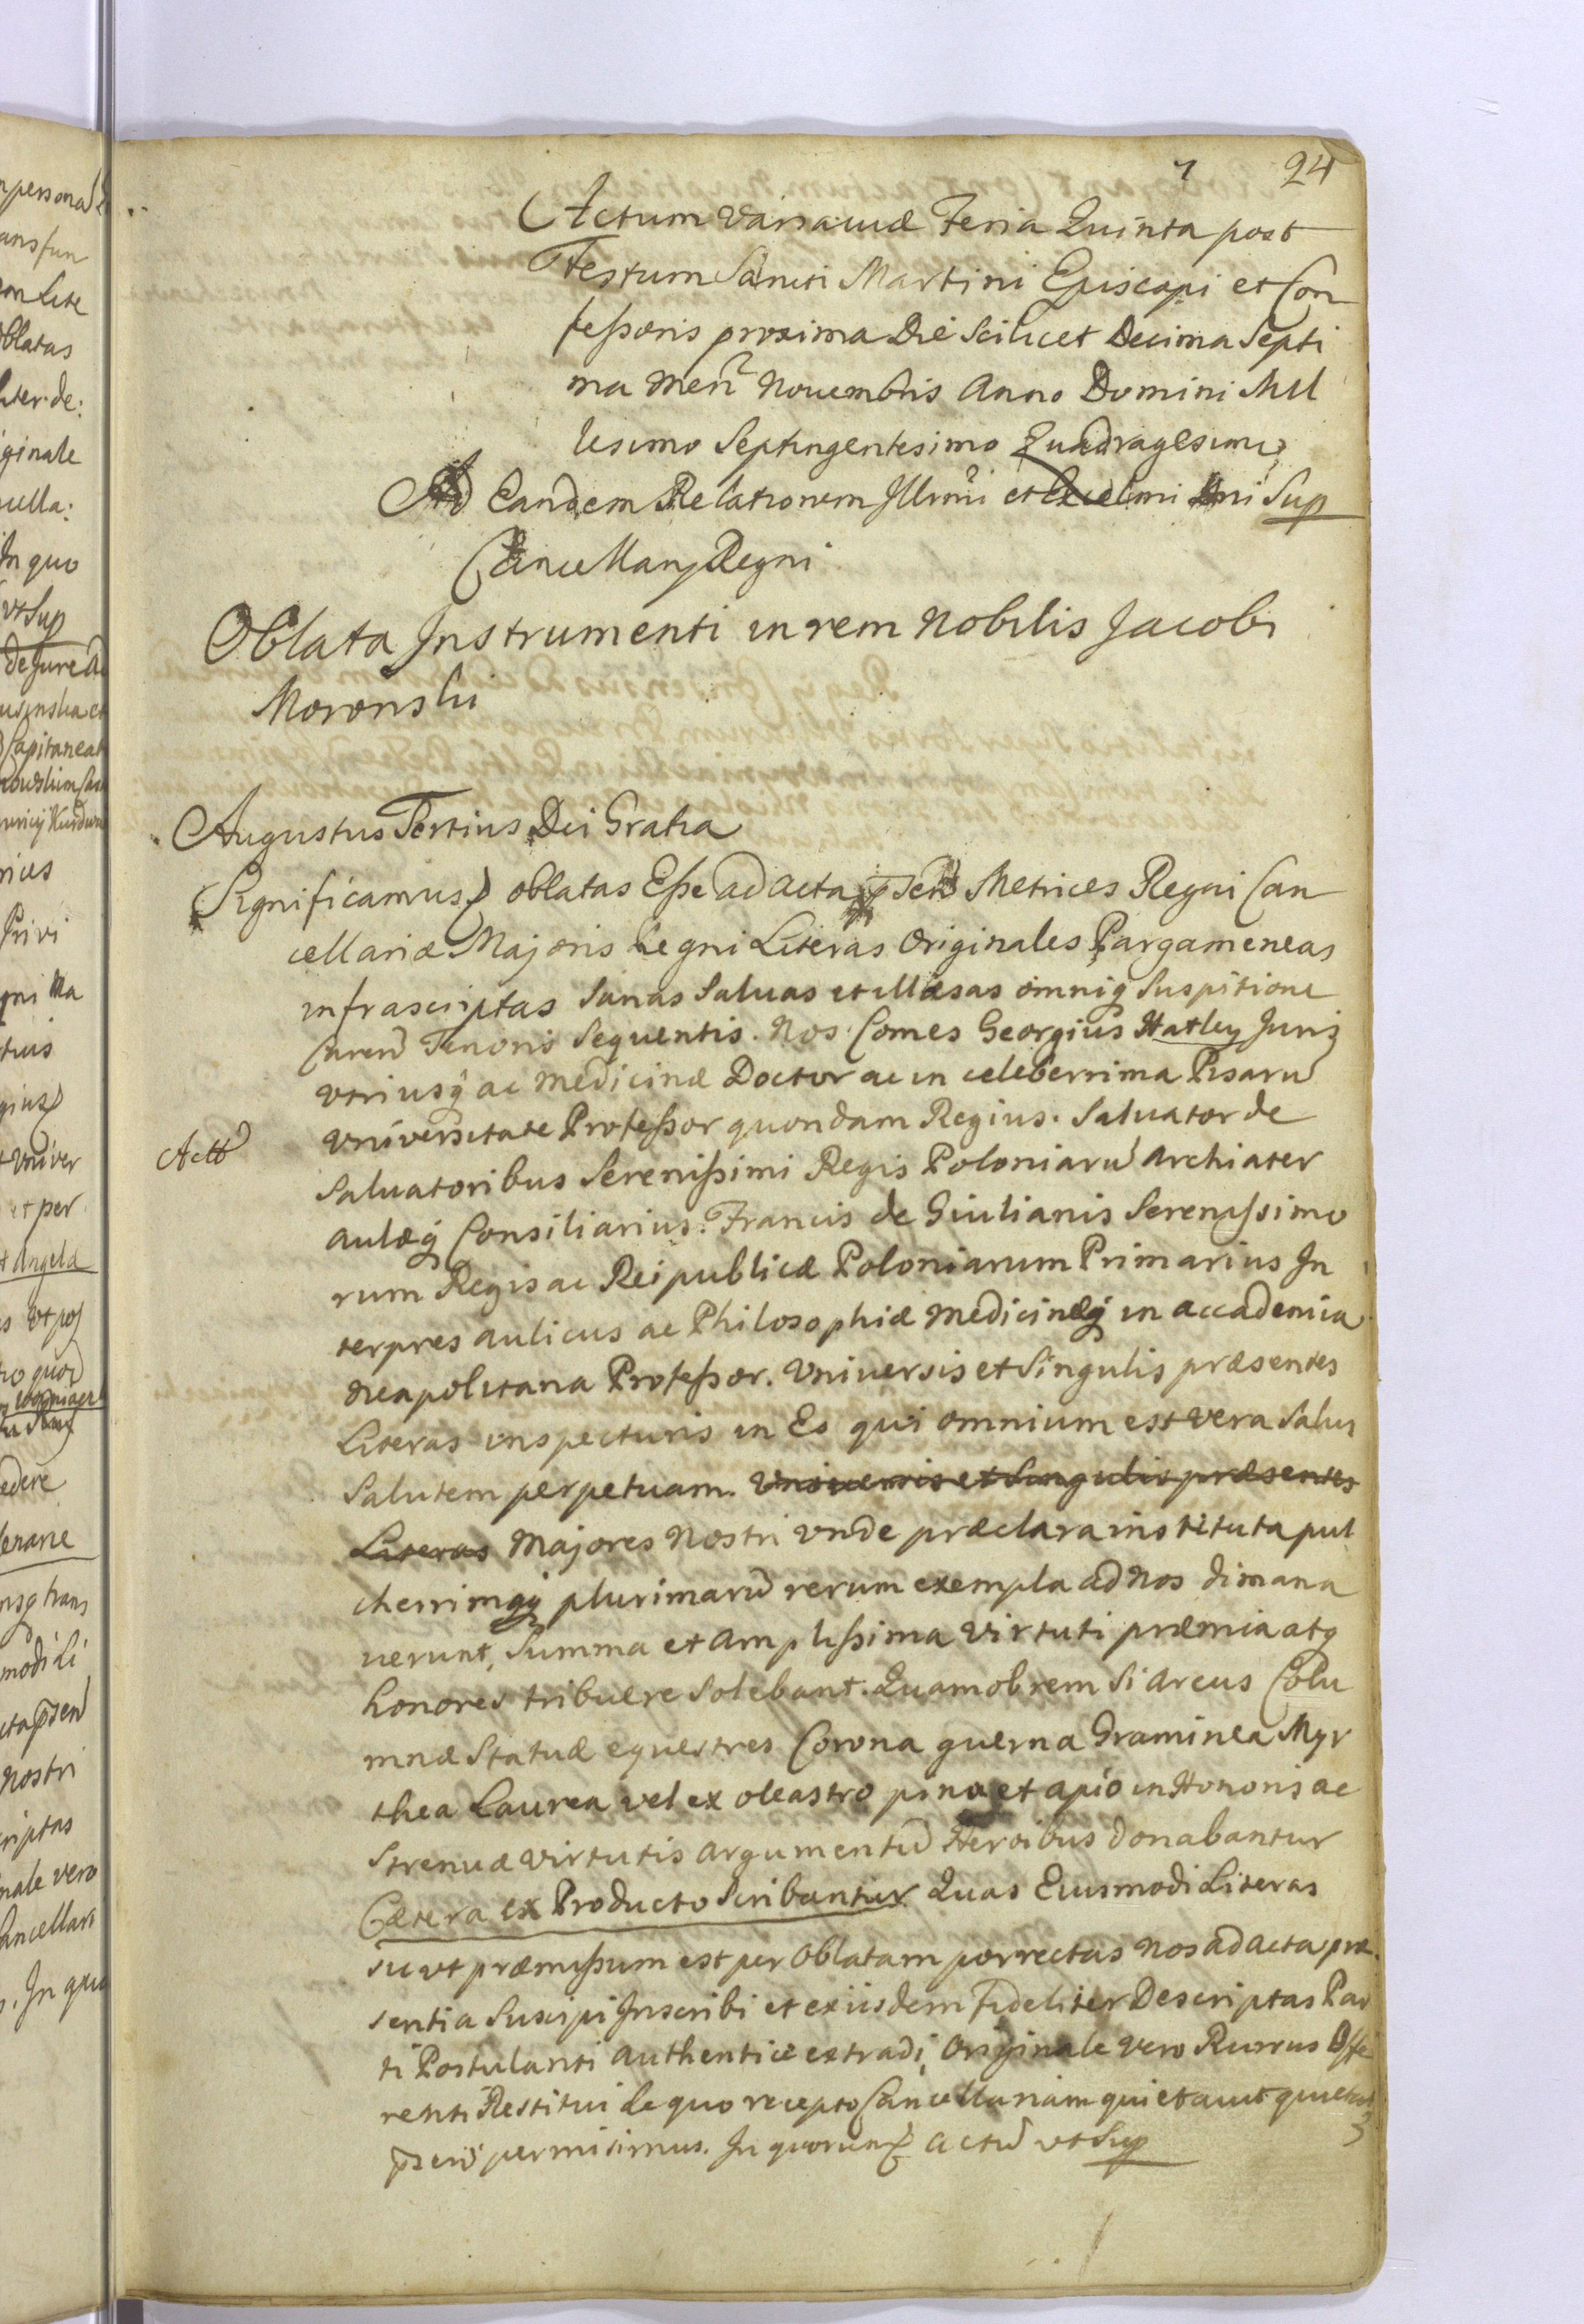 7 24
Actum Varsaviæ Feria Quinta post
Festum Sancti Martini Episcopi et Con
feßoris proxima Die Scilicet Decima Septi
ma Men Novembris Anno Domini Mil
lesimo Septingentesimo Quadragesimo
Ad Eandem Relationem Illrmi et Excelmi Dni Sup
Cancellarij Regni
Oblata Instrumenti in rem Nobilis Jacobi
Moronski
Augustus Tertius Dei Gratia
Significamus oblatas Eße ad acta psen Metrices Regni Can
cellariæ Majoris Regni Literas Originales Pargameneas
infrascriptas Sanas Salvas et illæsas omniq Suspitione
Caren Tenoris Sequentis. Nos Comes Georgius Hatley Juris
Vtriusq ac Medicinæ Doctor ac in celeberrima Pisaru
Vniversitate Profeßor quondam Regius. Salvator de
Actt
Saluatoribus Serenißimi Regis Poloniaru Archiater
aulæq Consiliarius. Francis de Giulianis Serenissimo
rum Regis ac Reipublicæ Poloniarum Primarius In
terpres aulicus ac Philosophiæ Medicinæq in accademia
Neapolitana Profeßor. Vniversis et Singulis præsentes
Literas inspecturis in Eo qui omnium est vera Salus
Salutem perpetuam. Vniuersis et Singulis præsentes
Literas Majores Nostri Vnde præclara instituta pul
cherrimaq plurimaru rerum exempla ad Nos dimana
uerunt, Summa et Ampliſsima Virtuti præmia atq
honores tribuere Solebant. Quamobrem Si arcus Colu
mnæ Statuæ equestres Corona querna Graminea Myr
thea Laurea vel ex oleastro pino et apio in Honoris ac
Strenuæ Virtutis argumentu Heroibus donabantur
Cætera ex Producto Scribantur Quas Eiusmodi Literas
sic vt præmißum est per Oblatam porrectas Nos ad acta præ
sentia Suscipi Inscribi et ex iisdem Fideliter Descriptas Par
ti Postulanti Authentice extradi, Originale vero Rursus Offe
renti Restitui de quo recepto Cancellariam quietavit quietat
psen permisimus. In quorum actu vt Sup